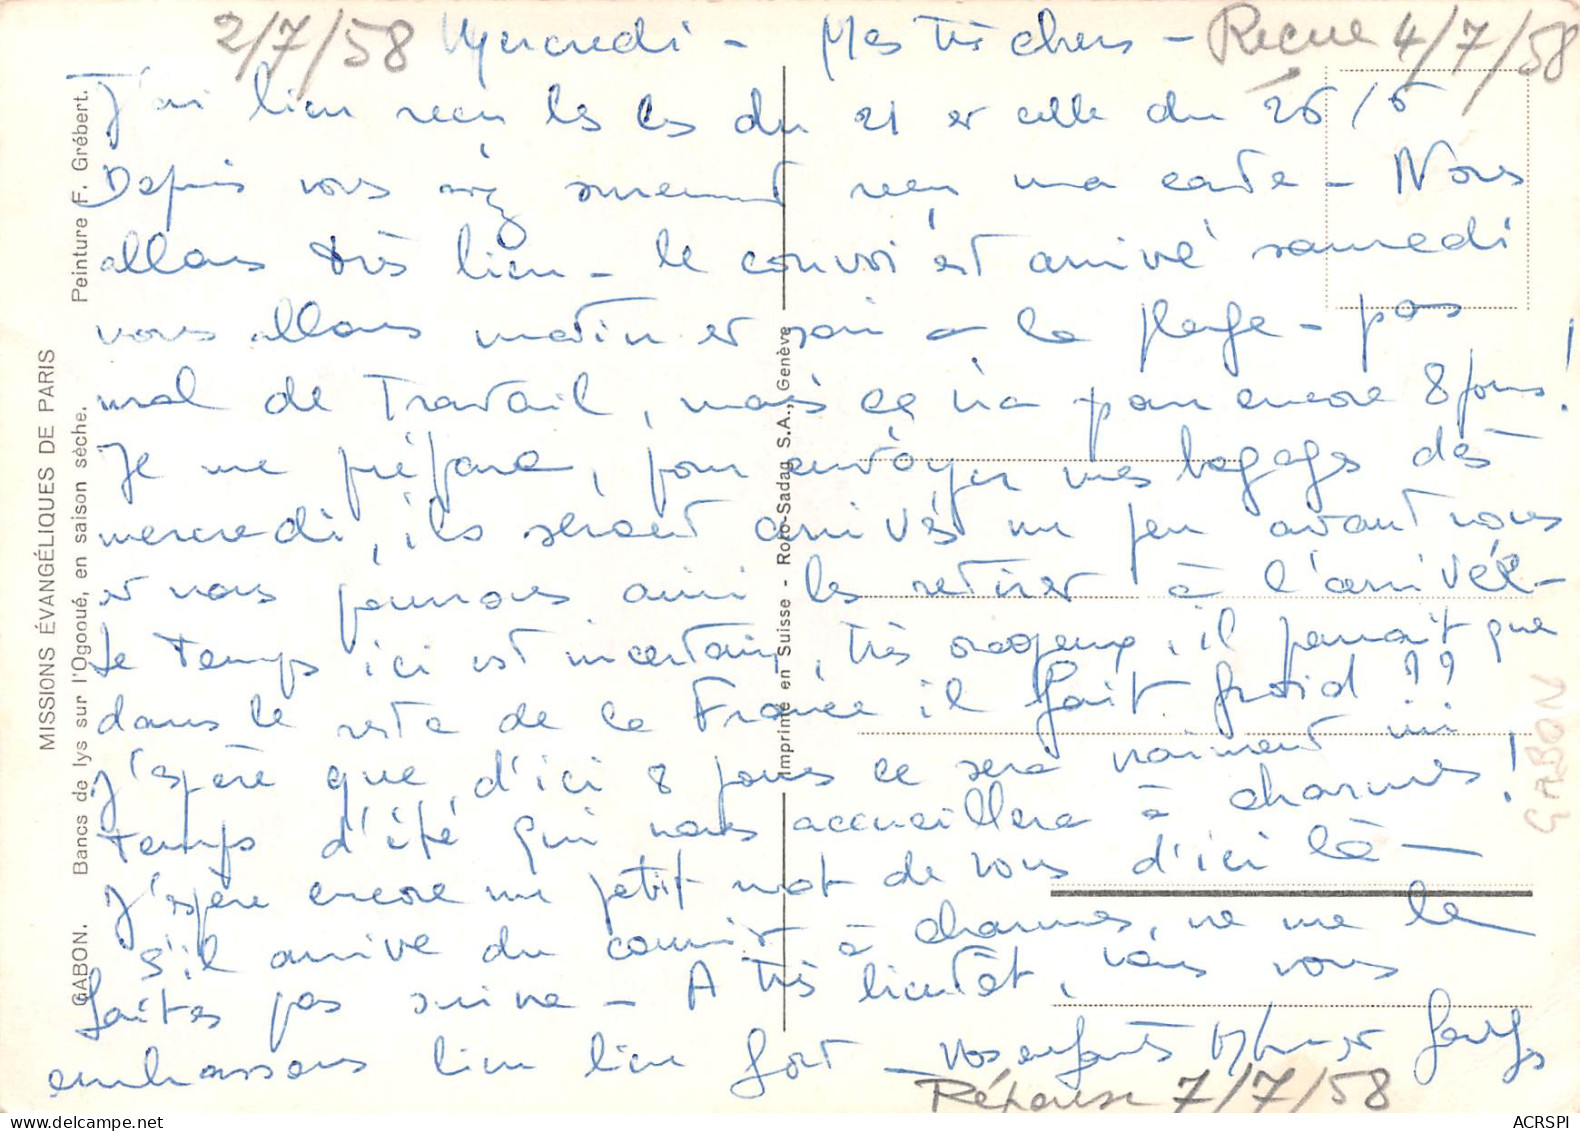 2/7/58 Mercredi - Mes très chers - Reçue 4/7/58
J'ai bien reçu les les du 21 et celle du 26/6
Depuis vous avez surement reçu ma carte - Nous
allons très bien - le convoi est arrivé samedi
nous allons matin et soir a la plage - pas
mal de travail, mais ce n'a pour encore 8 jours!
Je me prépare, pour envoyer mes bagages dès
mercredi, ils seront arrivés un peu avant nous
et nous pourrons ainsi les retirer à l'arrivée -
Le temps ici est incertain, très orageux, il parrait que
dans le reste de la France il fait froid ??
J'espère que d'ici 8 jours ce sera vraiment un
temps d'été qui nous accueillera à charmes!
J'espère encore un petit mot de vous d'ici là -
S'il arrive du courrier à charmes, ne me le
faites pas suivre - A très bientôt, nous vous
embrassons bien bien fort - vos enfants et
Réponse 7/7/58
MISSIONS ÉVANGÉLIQUES DE PARIS
GABON. Bancs de lys sur l'Ogooué, en saison sèche. Peinture F. Grébert.
Imprimé en Suisse - Roto-Sadag S.A., Genève
GABON
ACRSPI